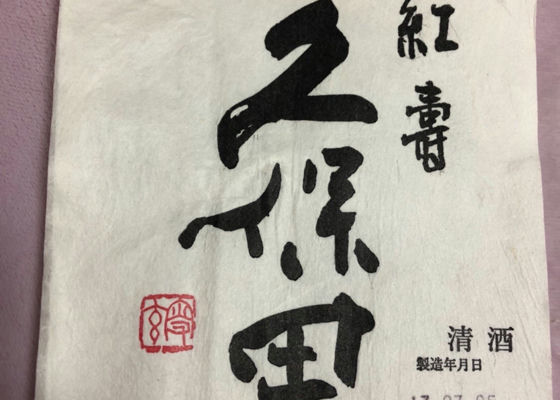 紅寿
久保田
清酒
製造年月日